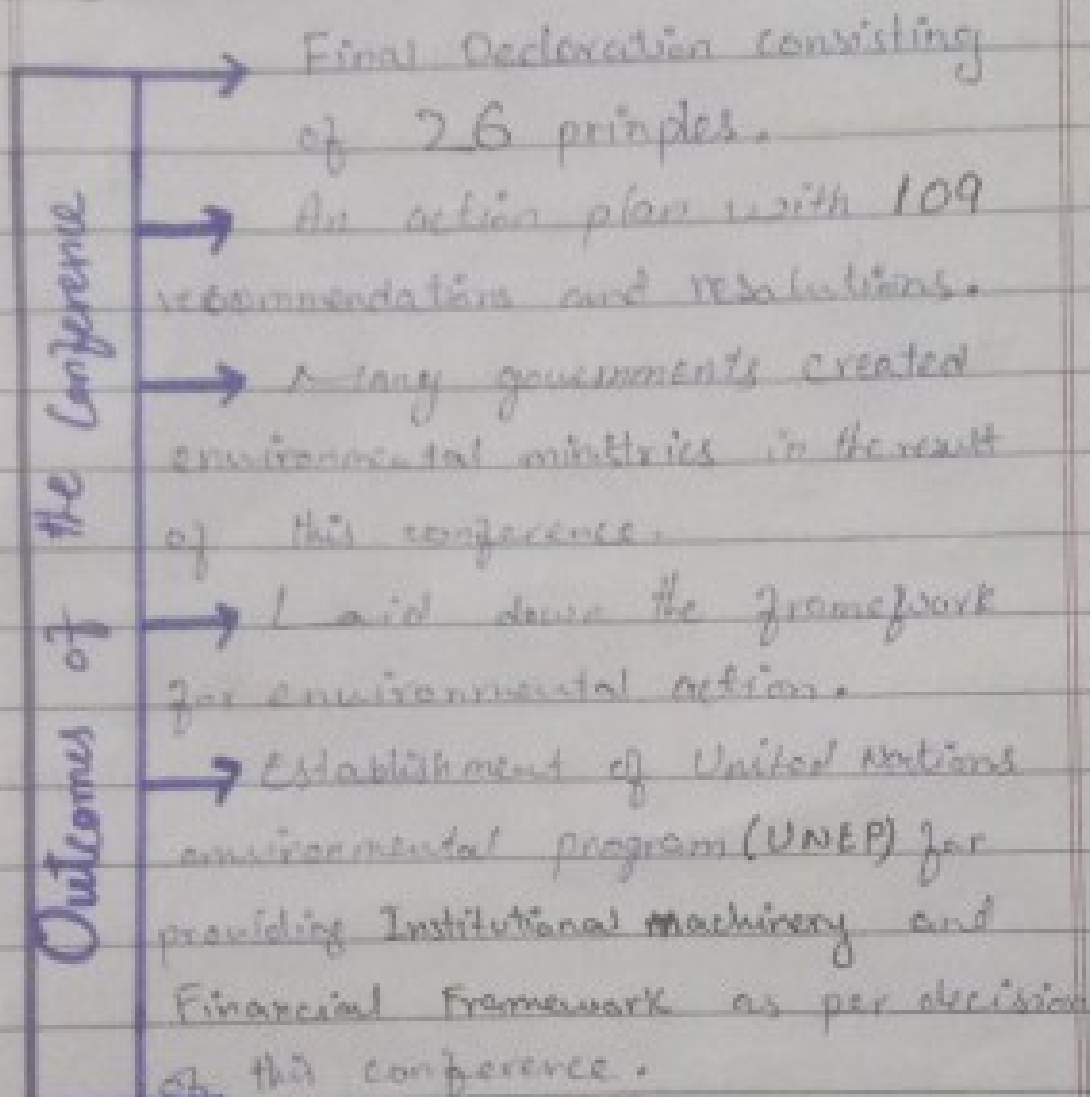 Outcomes of the Conference
Final Declaration consisting
of 26 prinples.
An action plan with 109
recommendations and resolutions.
Many governments created
environmental ministries in the result
of this conference.
Laid down the framework
for environmental action.
Establishment of United Nations
environmental program (UNEP) for
providing Institutional Machinery and
Financial Framework as per decision
of this conference.